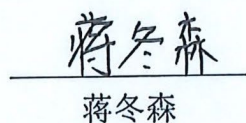 蒋冬森
蒋冬森